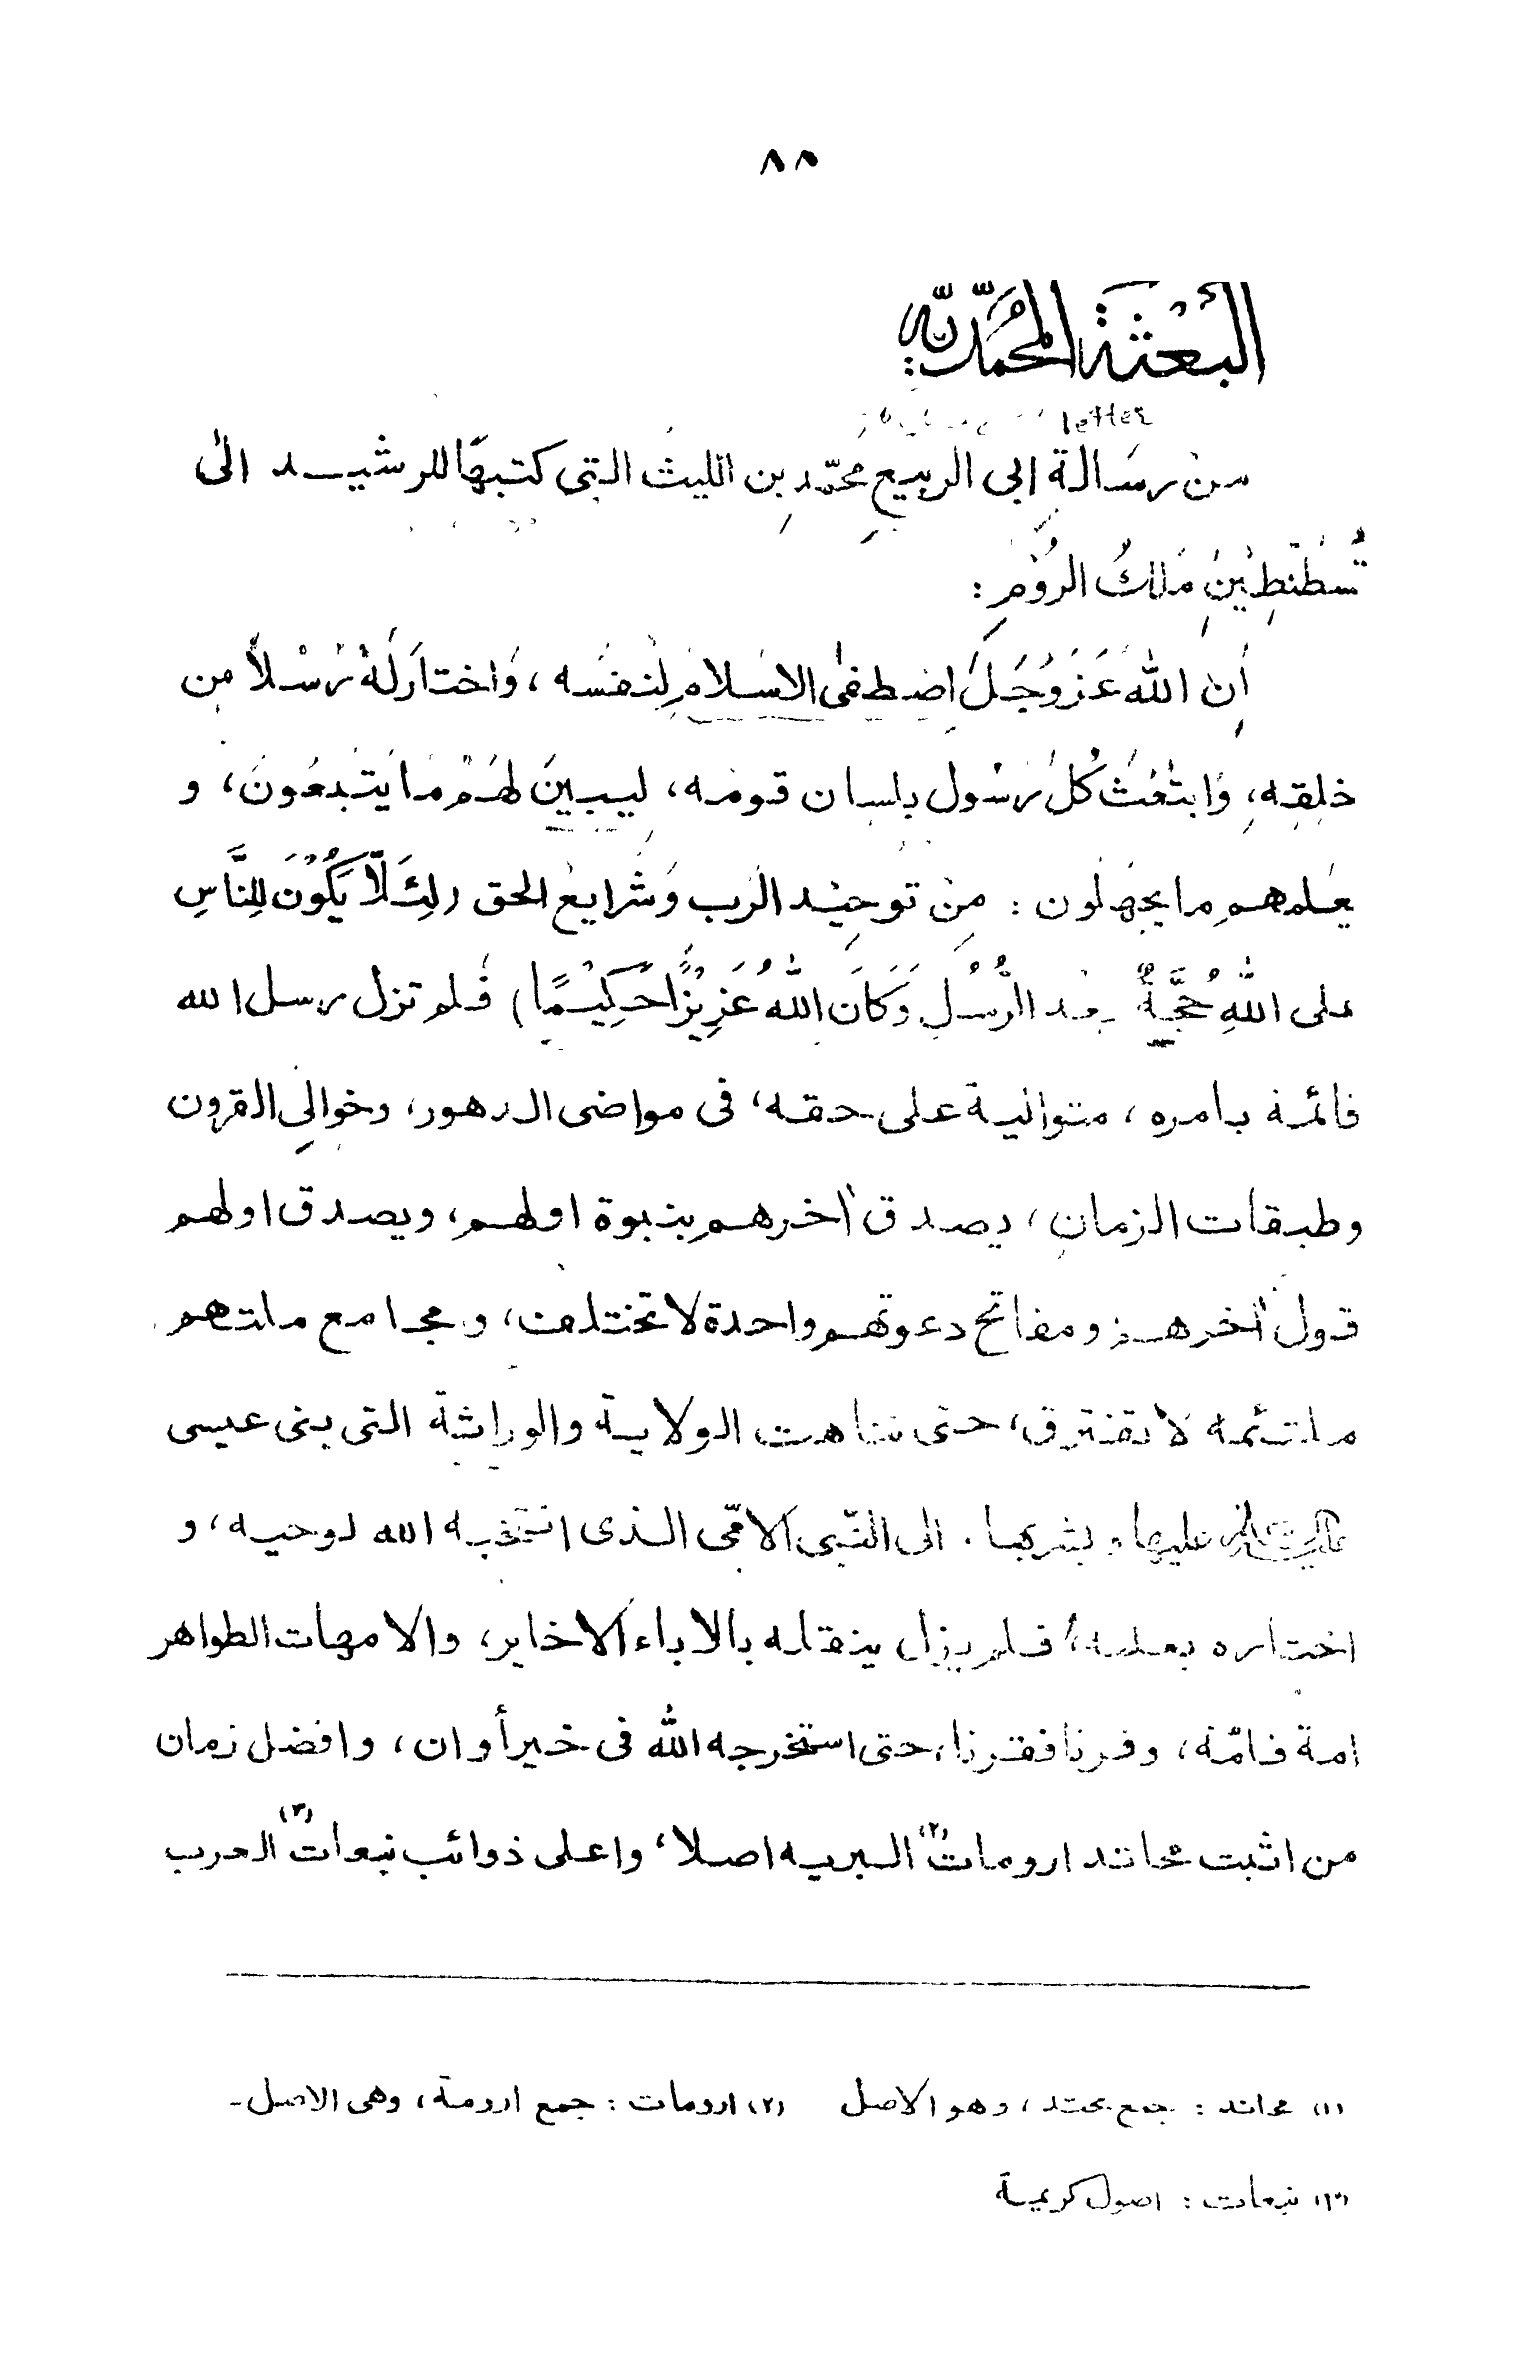 ٨٨
البَعْثَةُ المُحَمَّدِيَّه
letter
من رسَالةِ ابى الربيعِ محمّد بنِ الليث التى كتبهَا للرشيد الىٰ
قُسْطَنْطِيْنِ مَلكُ الرُوْمِ :
إن اللهَ عَزَوُجَلَ اصطفىٰ الاسَلامِ لنفسَه ، وَاختارَلَهُ رُسْلاً من
خلِقهِ، وَابتُعُثَ كُلَ رسُول بلسان قومه، ليبينَ لهُمْ مَا يتبعُونَ، و
يعَلمهمِ ما يجهَلون : مِنْ توحيْد الرَب وَشَرايعْ الحق (لِئَلَّا يَكُوْنَ لِلنَّاسِ
على اللهِ حُجَّةٌ بعْد الرُّسُلِ وَكَانَ اللهُ عَزِيْزًا حَكِيْمًا) فلم تزل رسل الله
قائمة بامره ، متوالية على حقه، فى مواضى الدهور، وخوالِى القرون
وطبقات الزمانِ، يصدق أخرهم بنبوة اولهم، ويصدق اولهم
قول أخرهم ومفاتح دعوتهم واحدة لا تختلف، ومجامع ملتهم
ملتئمه لا تفترق، حتى تناهت الولاية والوراثة التى بنى عيسى
عليها وبشر بها . الى النّبى الامّى الذى انتخبه الله لوحيه، و
اختاره بعلمه، فلم يزل ينقله بالاباء الاخاير، والامهات الطواهر
امة فامّة، وقرنا فقرنا، حتى استخرجه الله فى خير أوان، وافضل زمان
من اثبت محاتد ارومات(٢) البريه اصلا، واعلى ذوائب نبعات(٣) العرب
(١) محاتد : جمع محتد، وهو الاصل (٢) ارومات : جمع ارومة، وهى الاصل -
(٣) نبعات : اصول كريمة